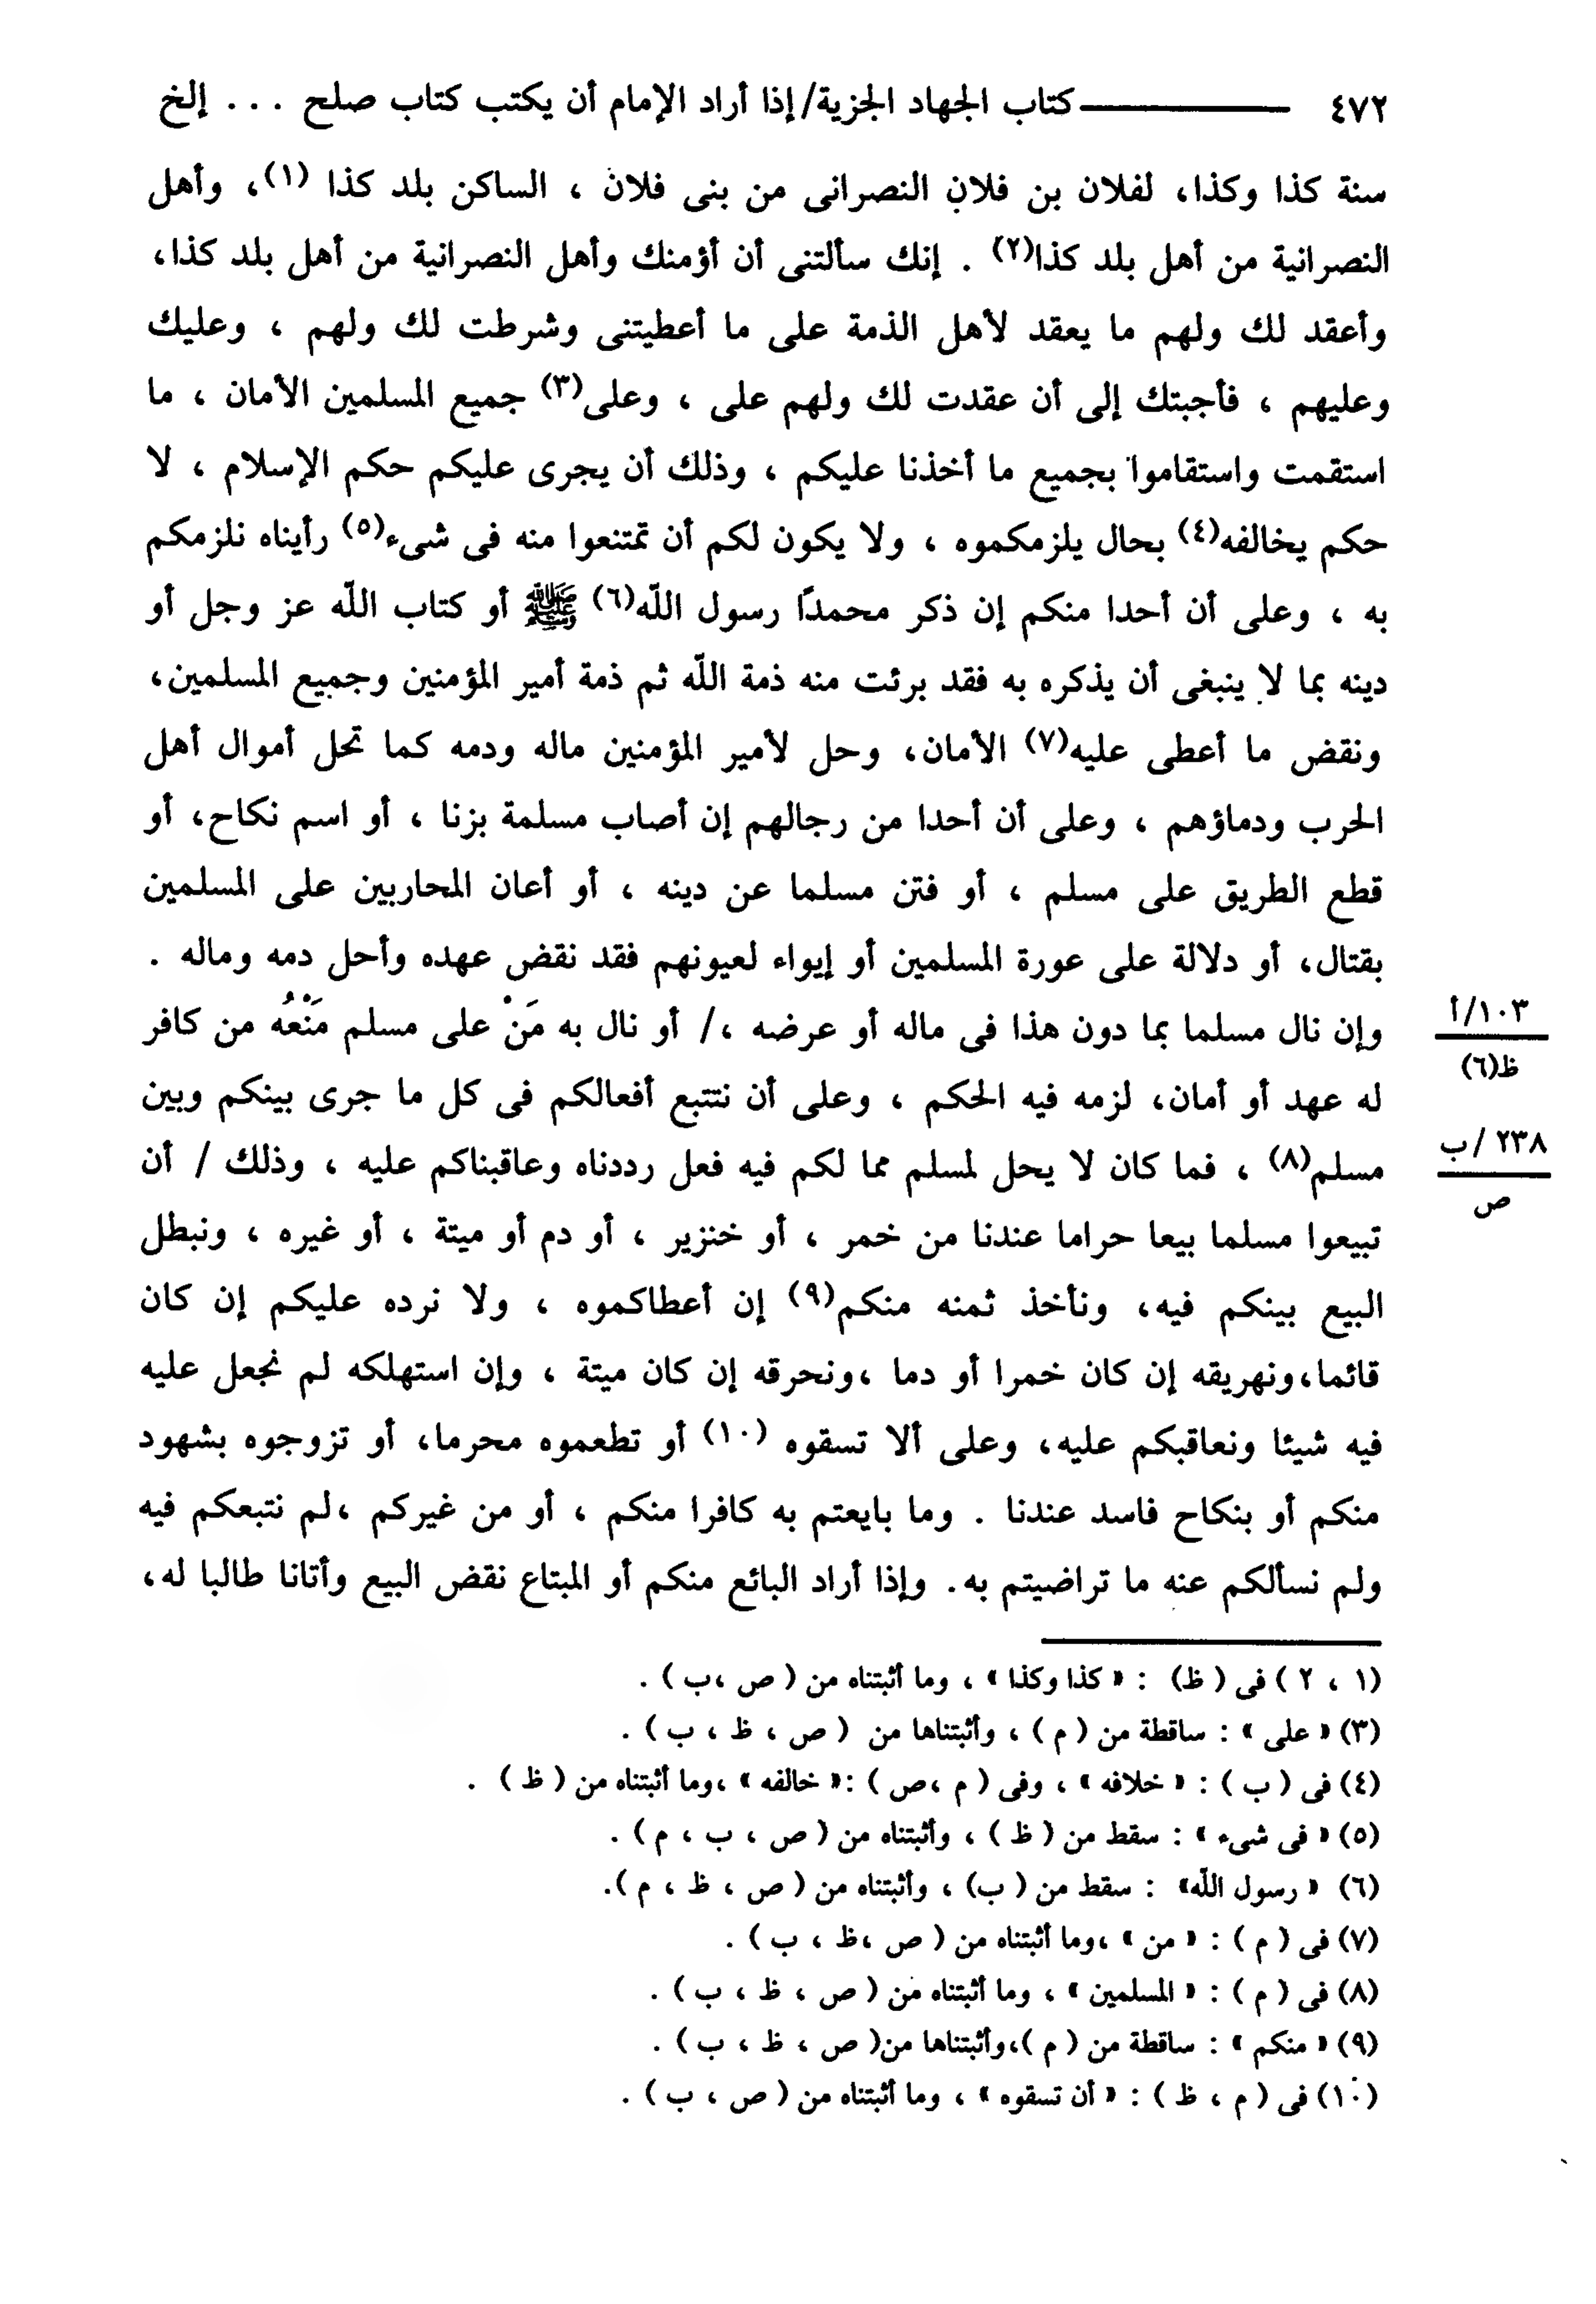 ٤٧٢ ——— كتاب الجهاد الجزية/إذا أراد الإمام أن يكتب كتاب صلح . . . إلخ
سنة كذا وكذا، لفلان بن فلان النصرانى من بنى فلان ، الساكن بلد كذا (١)، وأهل
النصرانية من أهل بلد كذا(٢) . إنك سألتنى أن أؤمنك وأهل النصرانية من أهل بلد كذا،
وأعقد لك ولهم ما يعقد لأهل الذمة على ما أعطيتنى وشرطت لك ولهم ، وعليك
وعليهم ، فأجبتك إلى أن عقدت لك ولهم على ، وعلى(٣) جميع المسلمين الأمان ، ما
استقمت واستقاموا بجميع ما أخذنا عليكم ، وذلك أن يجرى عليكم حكم الإسلام ، لا
حكم يخالفه(٤) بحال يلزمكموه ، ولا يكون لكم أن تمتنعوا منه فى شىء(٥) رأيناه نلزمكم
به ، وعلى أن أحدا منكم إن ذكر محمدًا رسول الله(٦) ﷺ أو كتاب الله عز وجل أو
دينه بما لا ينبغى أن يذكره به فقد برئت منه ذمة الله ثم ذمة أمير المؤمنين وجميع المسلمين،
ونقض ما أعطى عليه(٧) الأمان، وحل لأمير المؤمنين ماله ودمه كما تحل أموال أهل
الحرب ودماؤهم ، وعلى أن أحدا من رجالهم إن أصاب مسلمة بزنا ، أو اسم نكاح، أو
قطع الطريق على مسلم ، أو فتن مسلما عن دينه ، أو أعان المحاربين على المسلمين
بقتال، أو دلالة على عورة المسلمين أو إيواء لعيونهم فقد نقض عهده وأحل دمه وماله .
وإن نال مسلما بما دون هذا فى ماله أو عرضه ،/ أو نال به مَنْ على مسلم مَنْعُه من كافر
١٠٣/أ
ظ(٦)
له عهد أو أمان، لزمه فيه الحكم ، وعلى أن نتتبع أفعالكم فى كل ما جرى بينكم وبين
مسلم(٨) ، فما كان لا يحل لمسلم مما لكم فيه فعل رددناه وعاقبناكم عليه ، وذلك / أن
٢٣٨/ب
ص
تبيعوا مسلما بيعا حراما عندنا من خمر ، أو خنزير ، أو دم أو ميتة ، أو غيره ، ونبطل
البيع بينكم فيه، ونأخذ ثمنه منكم(٩) إن أعطاكموه ، ولا نرده عليكم إن كان
قائما،ونهريقه إن كان خمرا أو دما ،ونحرقه إن كان ميتة ، وإن استهلكه لم نجعل عليه
فيه شيئا ونعاقبكم عليه، وعلى ألا تسقوه (١٠) أو تطعموه محرما، أو تزوجوه بشهود
منكم أو بنكاح فاسد عندنا . وما بايعتم به كافرا منكم ، أو من غيركم ،لم نتبعكم فيه
ولم نسألكم عنه ما تراضيتم به. وإذا أراد البائع منكم أو المبتاع نقض البيع وأتانا طالبا له،
(١ ، ٢ ) فى ( ظ) : « كذا وكذا » ، وما أثبتناه من ( ص ،ب ) .
(٣) « على » : ساقطة من ( م ) ، وأثبتناها من ( ص ، ظ ، ب ) .
(٤) فى ( ب ) : « خلافه » ، وفى ( م ،ص ) :« خالفه » ،وما أثبتناه من ( ظ ) .
(٥) « فى شىء » : سقط من ( ظ ) ، وأثبتناه من ( ص ، ب ، م ) .
(٦) « رسول الله» : سقط من ( ب) ، وأثبتناه من ( ص ، ظ ، م ).
(٧) فى ( م ) : « من » ،وما أثبتناه من ( ص ،ظ ، ب ) .
(٨) فى ( م ) : « المسلمين » ، وما أثبتناه من ( ص ، ظ ، ب ) .
(٩) « منكم » : ساقطة من ( م )،وأثبتناها من( ص ، ظ ، ب ) .
(١٠) فى ( م ، ظ ) : « أن تسقوه » ، وما أثبتناه من ( ص ، ب ) .